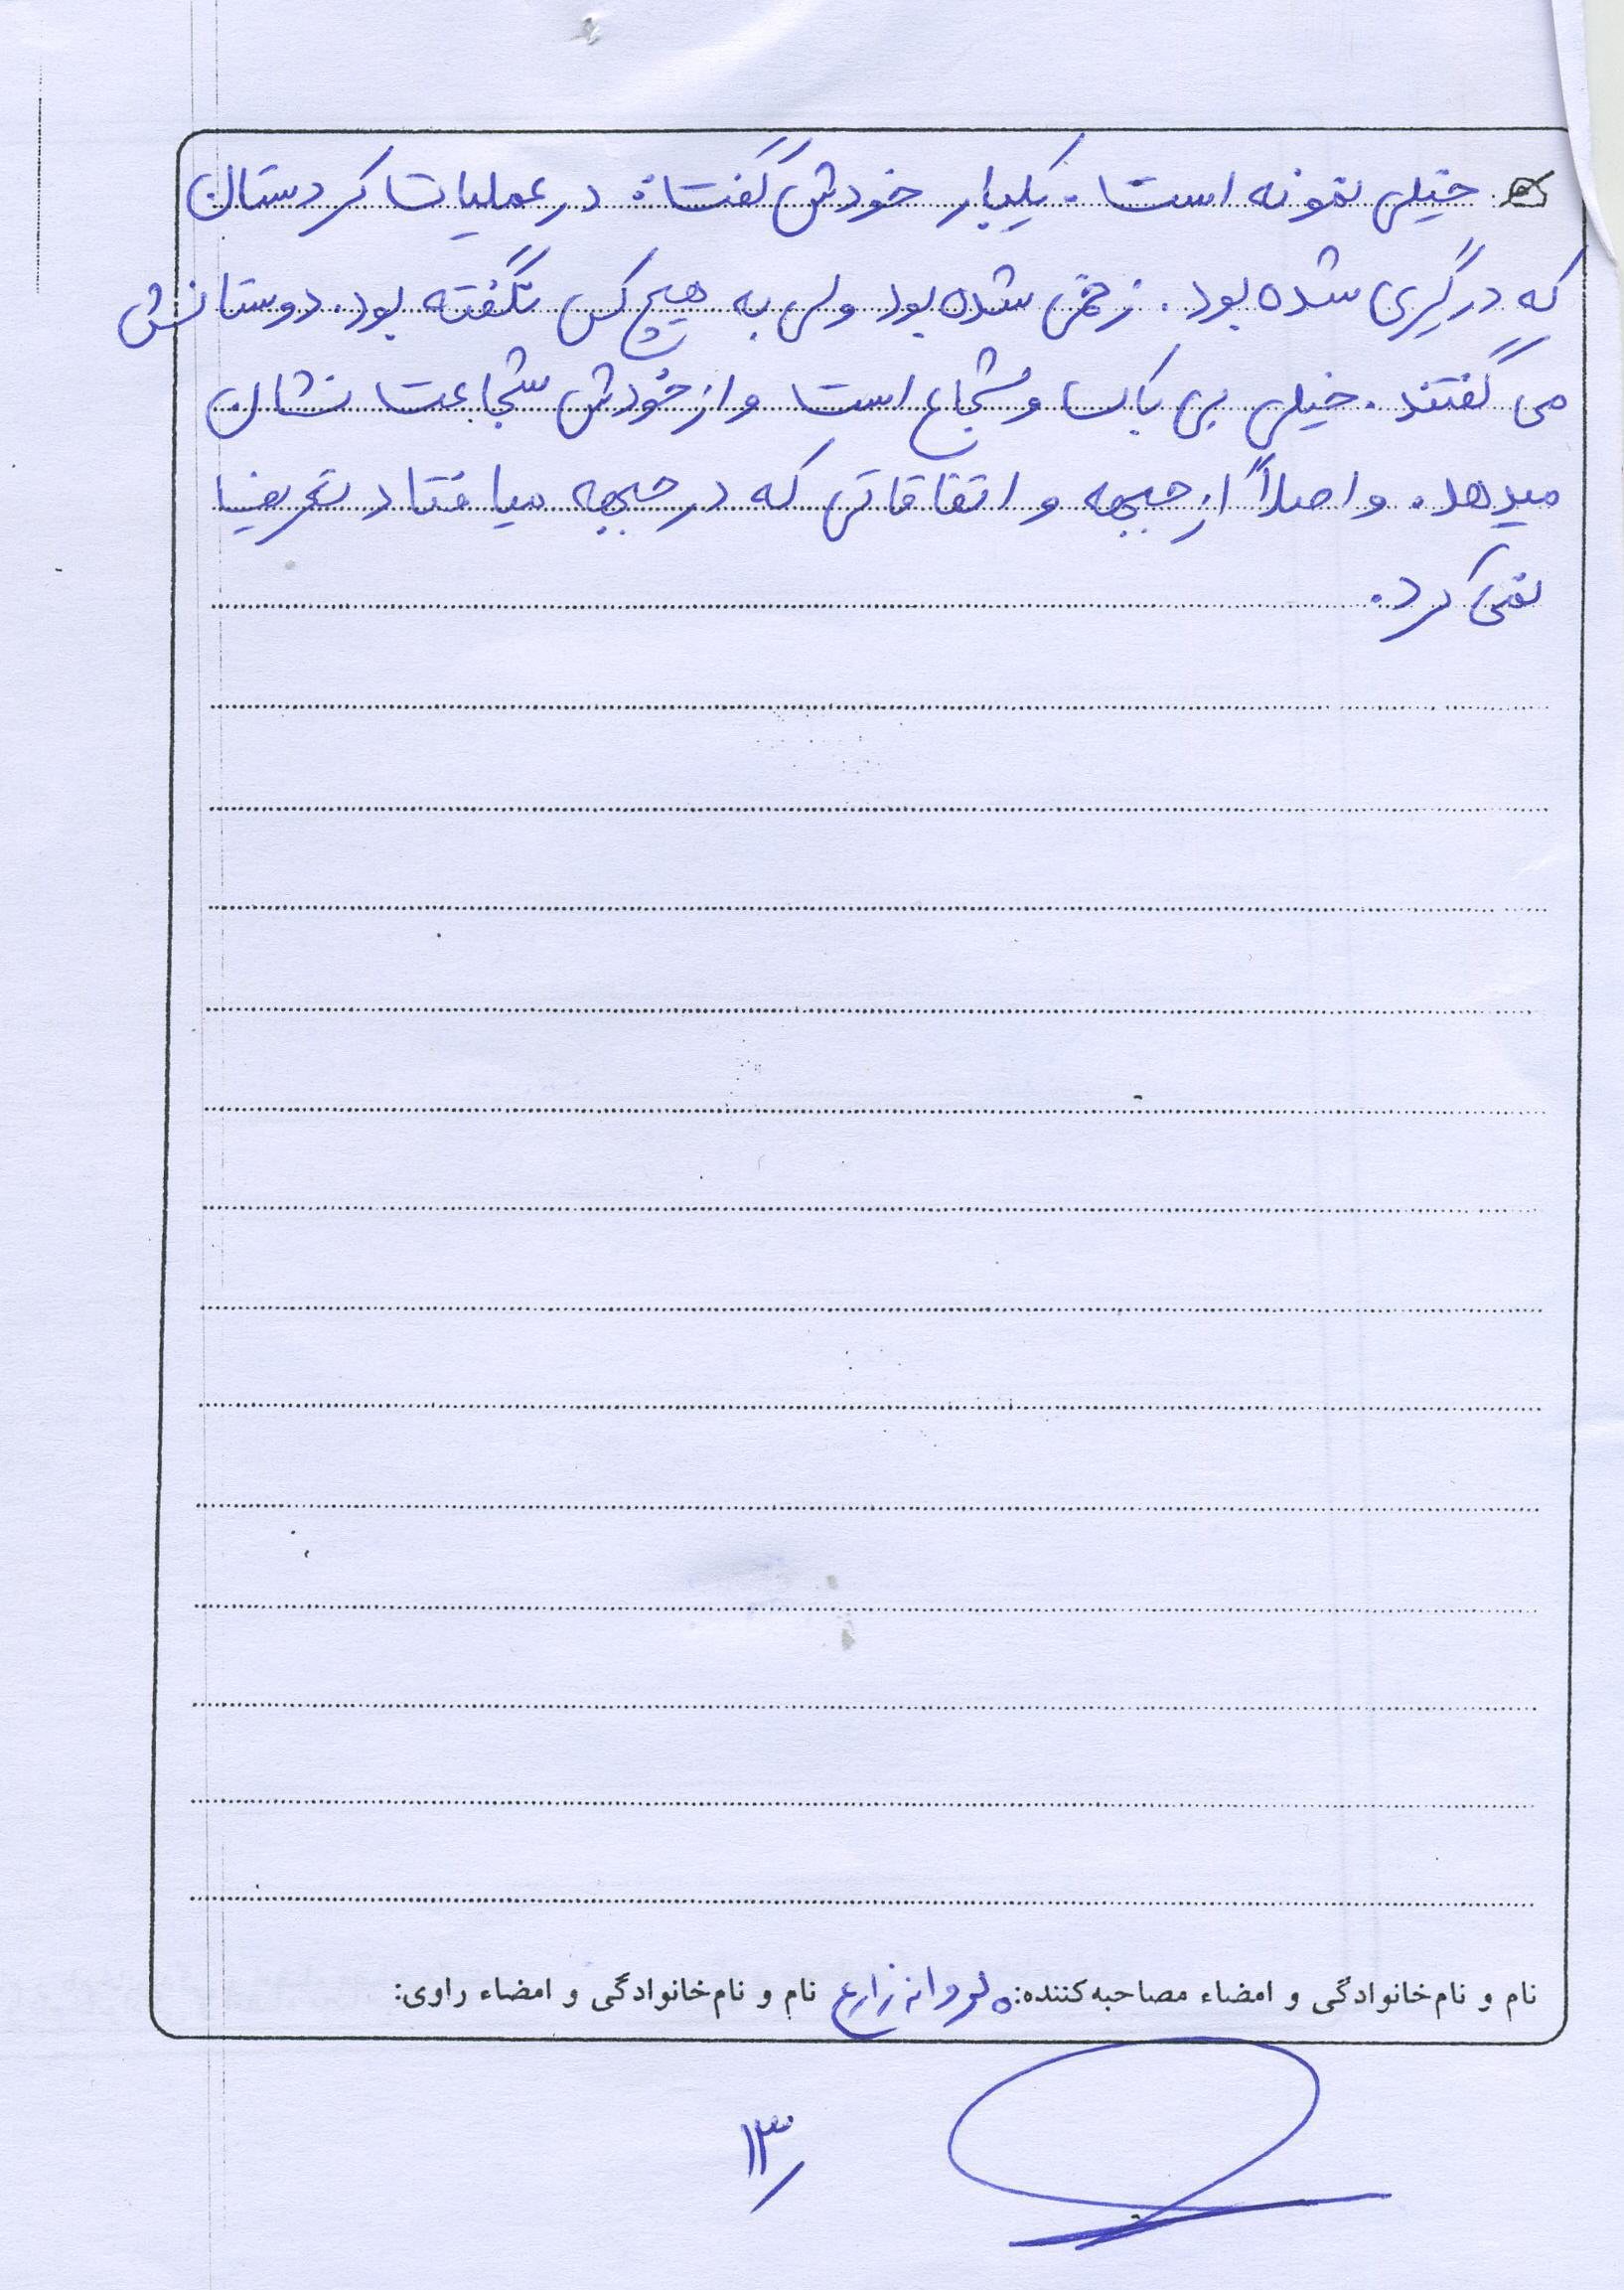 خیلی نمونه است. یکبار خودش گفت: در عملیات کردستان
که درگیری شده بود. زخمی شده بود ولی به هیچ کس نگفته بود. دوستانش
می گفتند. خیلی بی باک و شجاع است و از خودش شجاعت نشان
میدهد. و اصلاً از جبهه و اتفاقاتی که در جبهه میافتاد تعریف
نمی کرد.
نام و نام‌خانوادگی و امضاء مصاحبه‌کننده: پروانه زارع نام و نام‌خانوادگی و امضاء راوی:
۱۳